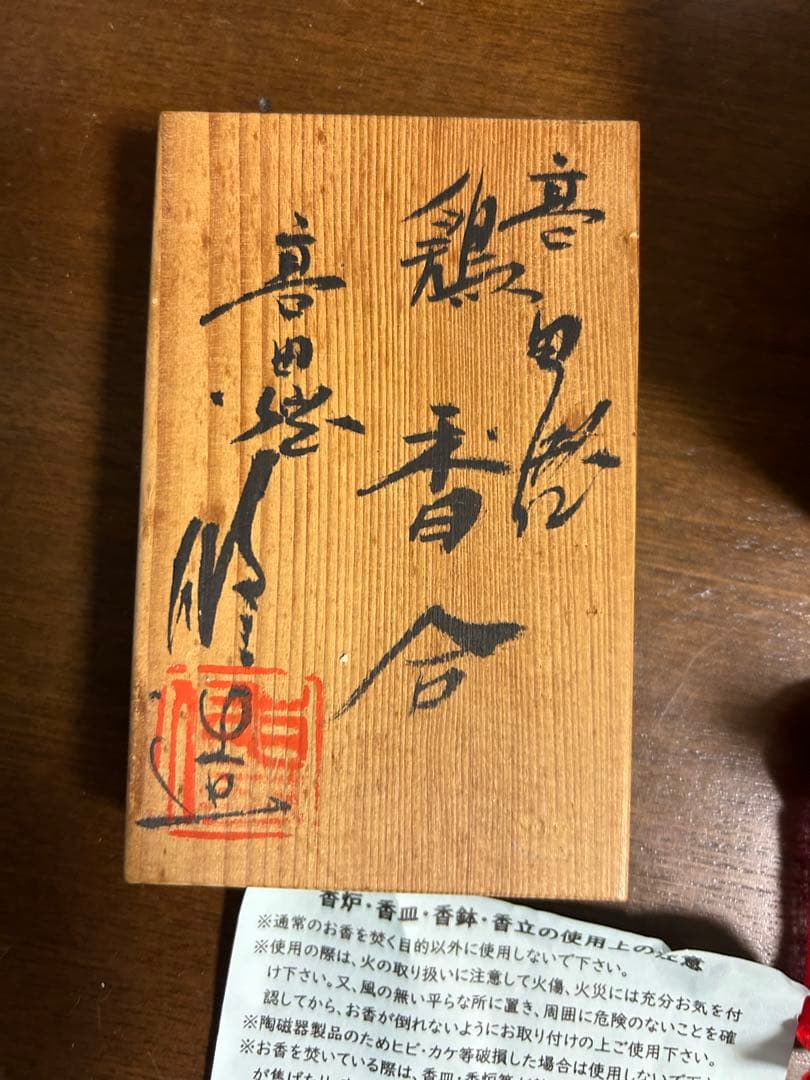 高田焼
鶏
香合
高田焼
造
香炉・香皿・香鉢・香立の使用上の注意
※通常のお香を焚く目的以外に使用しないで下さい。
※使用の際は、火の取り扱いに注意して火傷、火災には充分お気を付
け下さい。又、風の無い平らな所に置き、周囲に危険のないことを確
認してから、お香が倒れないようにお取り付けの上ご使用下さい。
※陶磁器製品のためヒビ・カケ等破損した場合は使用しないで下
※お香を焚いている際は、香皿・香炉等
が焦げたり